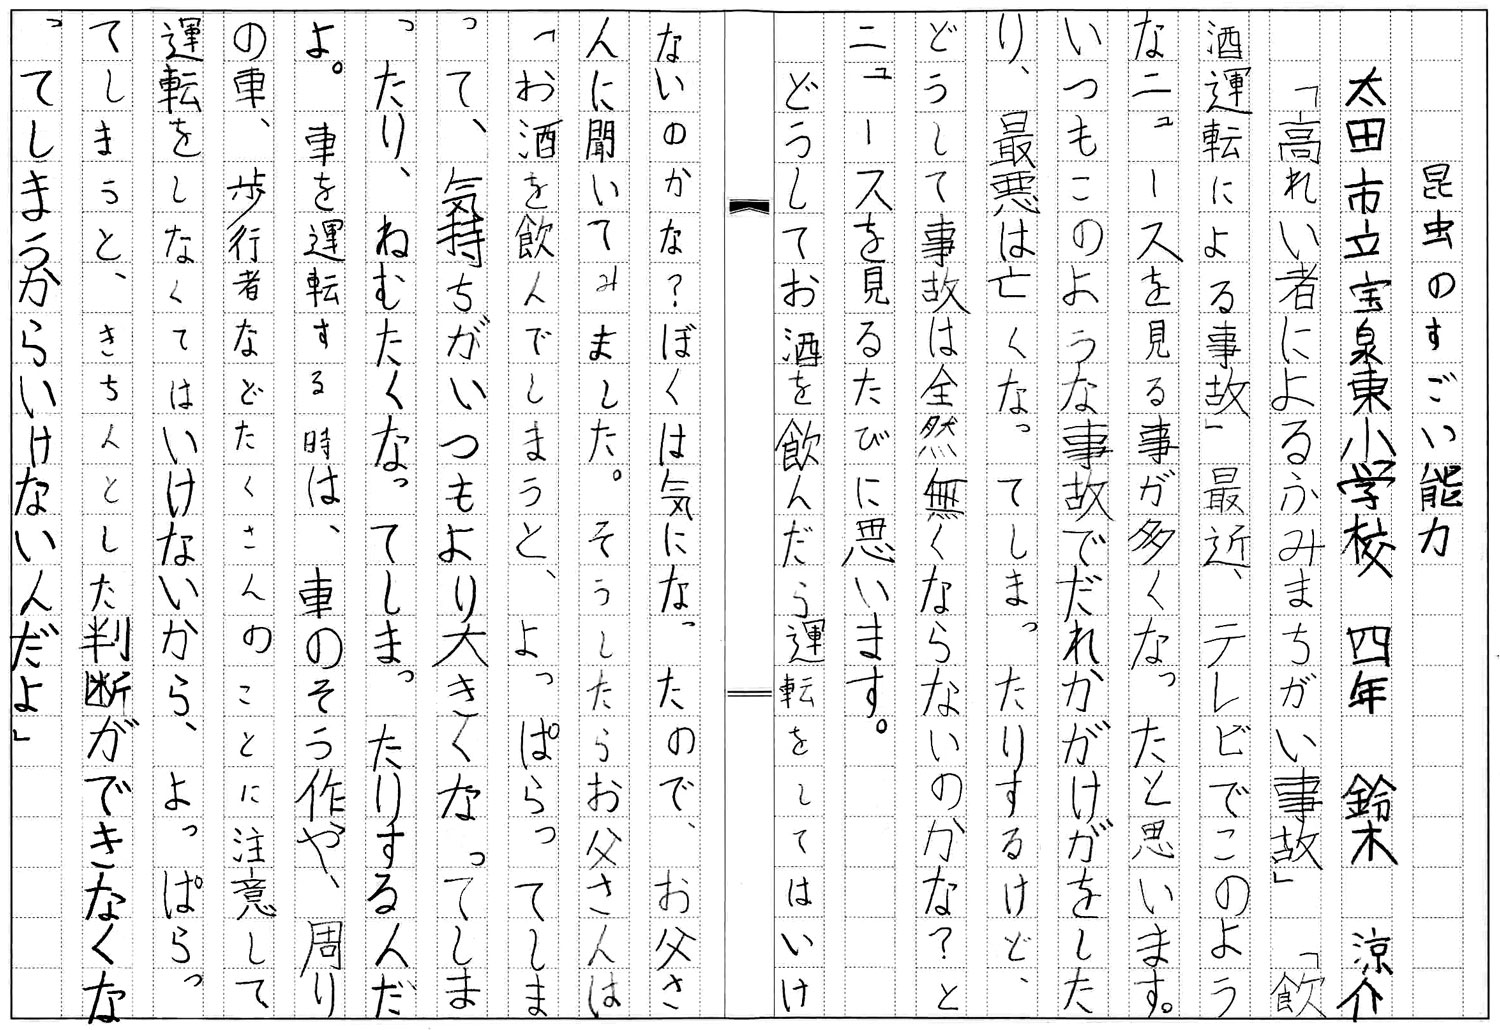 昆虫のすごい能力
太田市立宝泉東小学校　四年　鈴木　涼介
「高れい者によるふみまちがい事故」「飲
酒運転による事故」最近、テレビでこのよう
なニュースを見る事が多くなったと思います。
いつもこのような事故でだれかがけがをした
り、最悪は亡くなってしまったりするけど、
どうして事故は全然無くならないのかな？と
ニュースを見るたびに思います。
どうしてお酒を飲んだら運転をしてはいけ
ないのかな？ぼくは気になったので、お父さ
んに聞いてみました。そうしたらお父さんは
「お酒を飲んでしまうと、よっぱらってしま
って、気持ちがいつもより大きくなってしま
ったり、ねむたくなってしまったりするんだ
よ。車を運転する時は、車のそう作や、周り
の車、歩行者などたくさんのことに注意して
運転をしなくてはいけないから、よっぱらっ
てしまうと、きちんとした判断ができなくな
ってしまうからいけないんだよ」